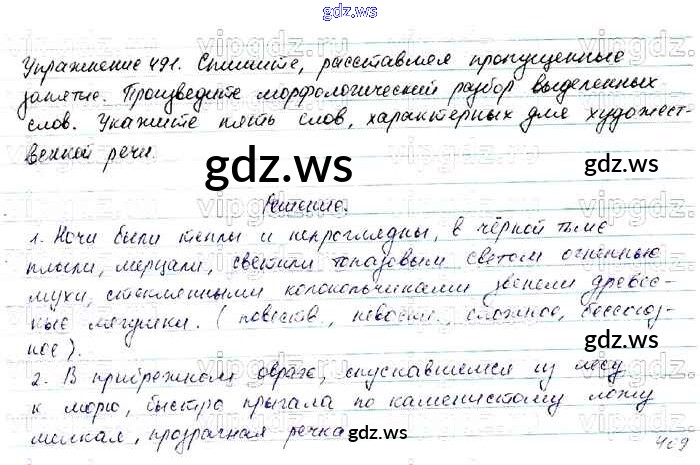 gdz.ws
Упражнение 491. Спишите, расставляя пропущенные
запятые. Произведите морфологический разбор выделенных
слов. Укажите пять слов, характерных для художест-
венной речи.
gdz.ws
Решение.
1. Ночи были теплы и непроглядны, в чёрной тьме
плыли, мерцали, светили топазовым светом огненные
мухи, стеклянными колокольчиками звенели древес-
ные лягушки. (повеств., невоскл., сложное, бессоюз-
ное).
2. В прибрежном овраге, спускавшемся из лесу
к морю, быстро прыгала по каменистому ложу
мелкая, прозрачная речка
409
gdz.ws